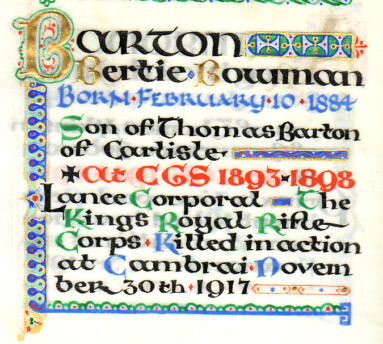 Barton
Bertie Bowman
Born · February · 10 · 1884
Son of Thomas Barton
of Carlisle ·
✠ At CGS 1893 · 1898
Lance Corporal The
Kings Royal Rifle
Corps · Killed in action
at Cambrai · Novem
ber 30th · 1917